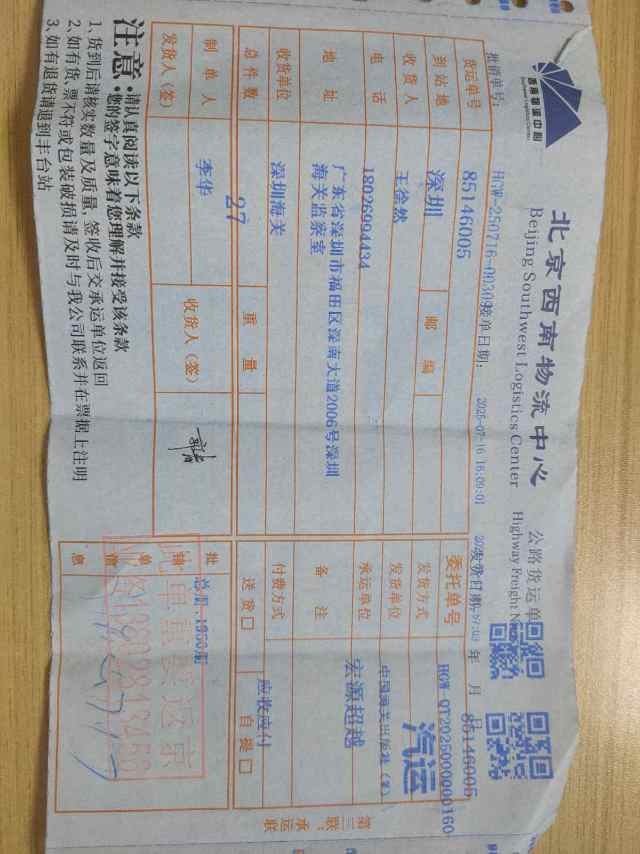 西南物流中心
北京西南物流中心
公路货运单
Beijing Southwest Logistics Center
Highway Freight N
批销单号: HGW-250716-0030
接单日期: 2025-07-16 16:00:01
年 月 日
货运单号 85146005
委托单号 85146005
HGW-QT2025000000160
到站地 深圳
邮编
发货方式 汽运
收货人 王徐然
发货单位
电话 18026994434
承运单位 宏源超越
地址 广东省深圳市福田区深南大道2006号深圳
海关监察室
备注
收货单位 深圳海关
付费方式 应收应付
总件数 27
重量
送货□ 自提□
制单人 李华
收货人(签)
批销单信息
发货人(签)
注意:
请认真阅读以下条款
您的签字意味着您理解并接受该条款
1、货到后请核实数量及质量,签收后交承运单位返回
2、如有货、票不符或包装破损请及时与我公司联系并在票据上注明
3、如有退货请退到丰台站
第三联:承运联